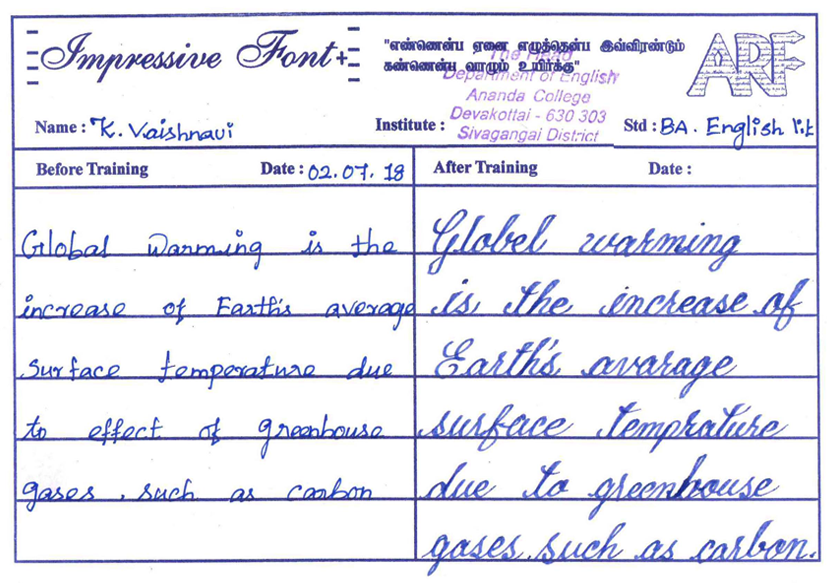 Impressive Font+
"எண்ணென்ப ஏனை எழுத்தென்ப இவ்விரண்டும்
கண்ணென்ப வாழும் உயிர்க்கு"
ARF
The Head
Department of English
Ananda College
Devakottai - 630 303
Sivagangai District
Name : K. Vaishnavi
Institute :
Std : BA. English lit
Before Training Date : 02.07.18
After Training Date :
Global Warming is the
increase of Earth's average
surface temperature due
to effect of greenhouse
gases, such as carbon
Globel warming
is the increase of
Earth's avarage
surface temprature
due to greenhouse
gases such as carbon.